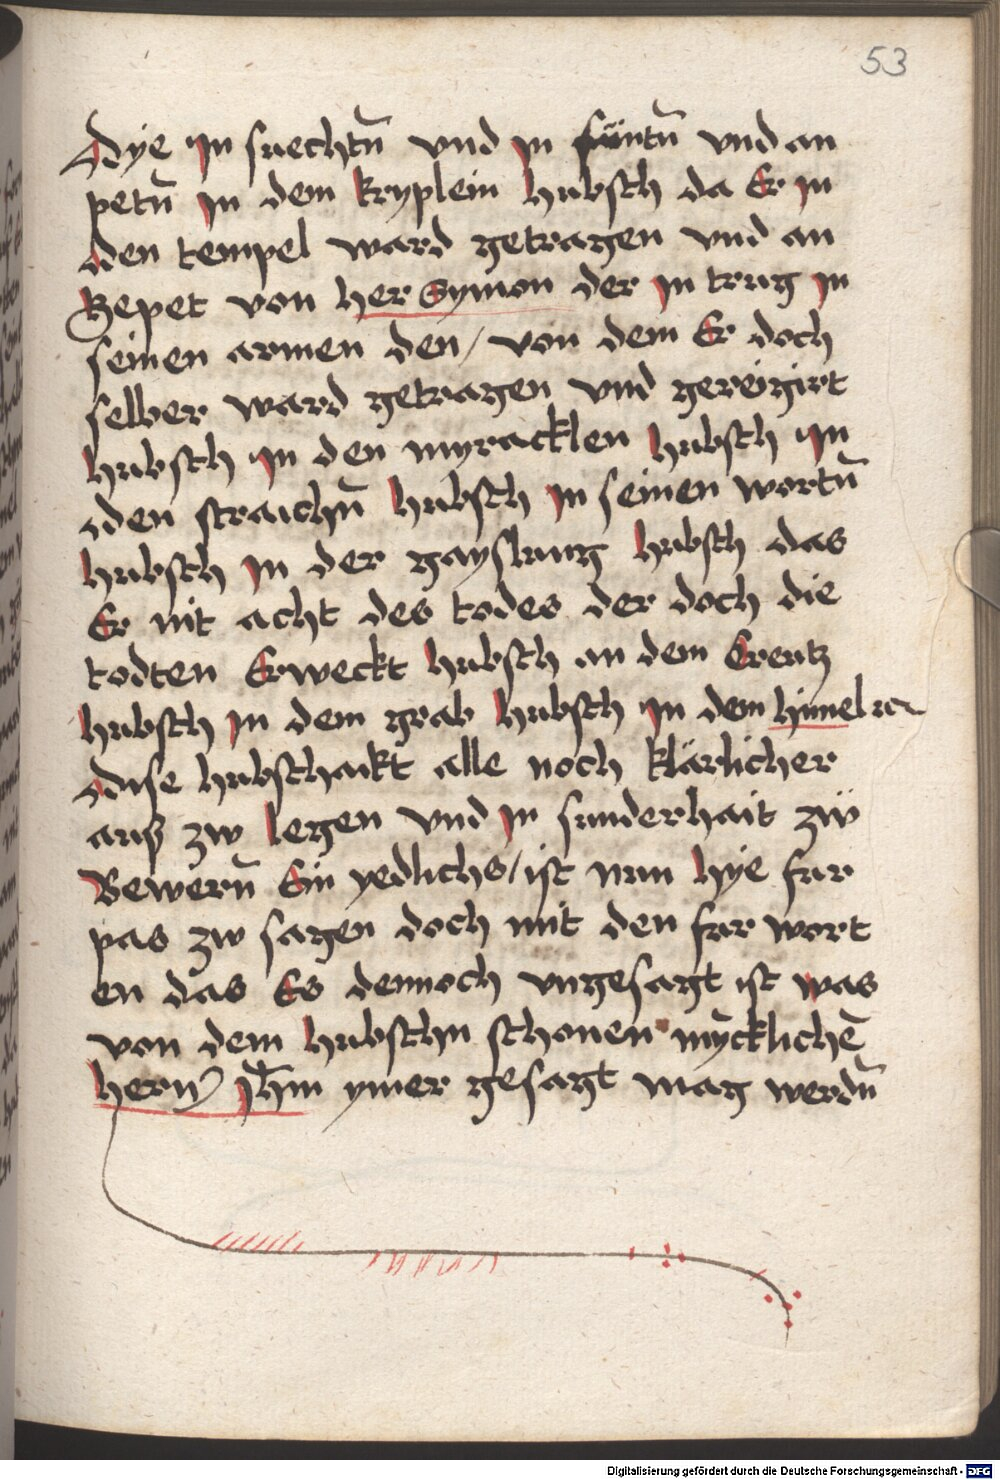 53
Dye Jn suechtn̄ vnd jn fūntn̄ vnd an
petn̄ jn dem kryplein hubsch da Er jn
den tempel ward getragen vnd an
Bepet von her Symon der jn trug jn
seinen armen den / von dem Er doch
selber ward getragen vnd gereigirt
hubsch Jn den myracklen hubsch Jn
den straichn̄ hubsch jn seinen wortn̄
hubsch jn der gayslung hubsch das
Er nit acht des todes der doch die
todten Erweckt hubsch an dem Creutz
hubsch jn dem grab hubsch jn dem himel ⁊c
Dise hubschaikt alle noch klärlicher
auß zw legen vnd jn sunderhait zẅ
Bewern̄ Ein yedlichs / ist nun hye fur
pas zw sagen doch mit den fur wort
en das Es dennoch vngesagt ist was
von dem hubschn schonen mȳcklichē
hern Jh̄m ymer gesagt mag werdn̄
Digitalisierung gefördert durch die Deutsche Forschungsgemeinschaft - DFG